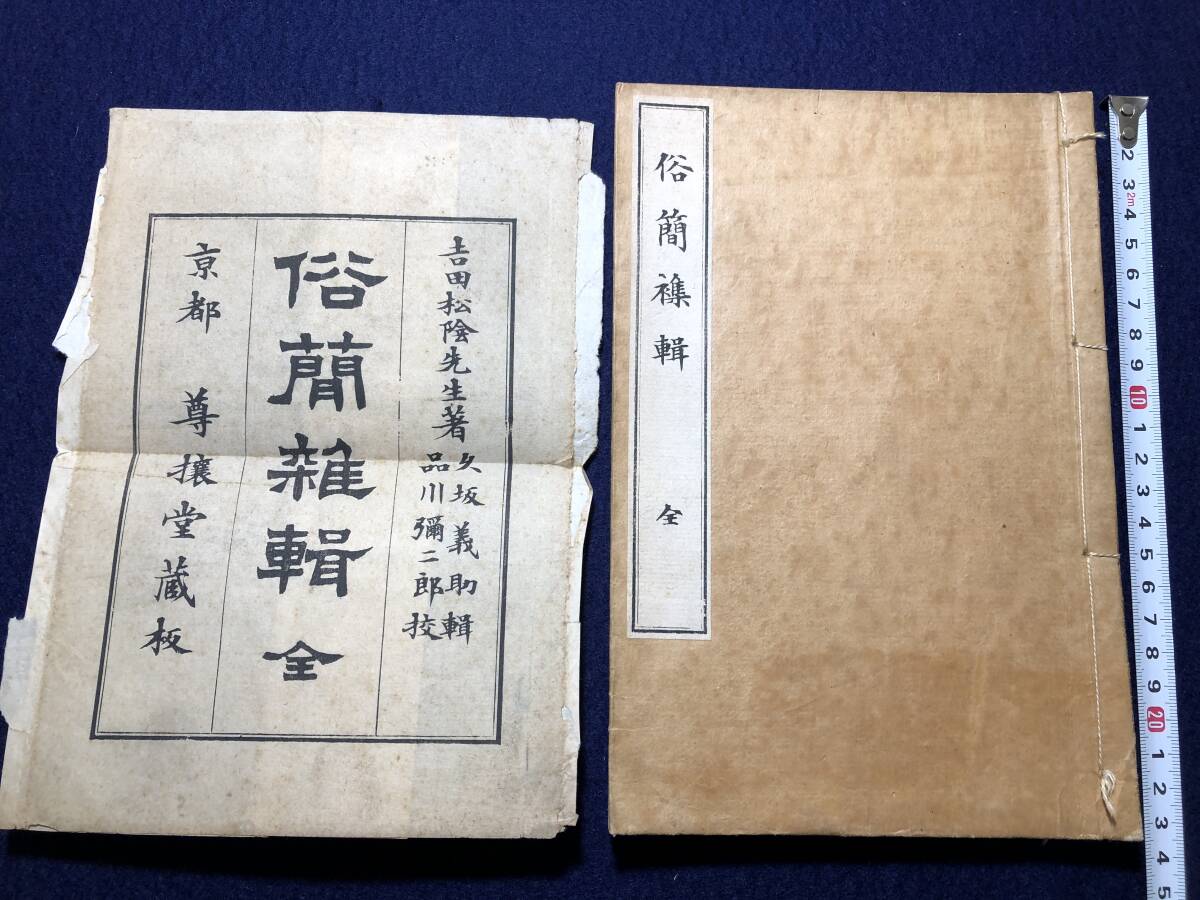 吉田松陰先生著
久坂義助輯
品川彌二郎挍
俗簡雜輯 全
京都 尊攘堂蔵板
俗簡襍輯 全
2
3
2m
4
5
6
7
8
9
10
1
2
3
4
5
6
7
8
9
20
1
2
3
4
5